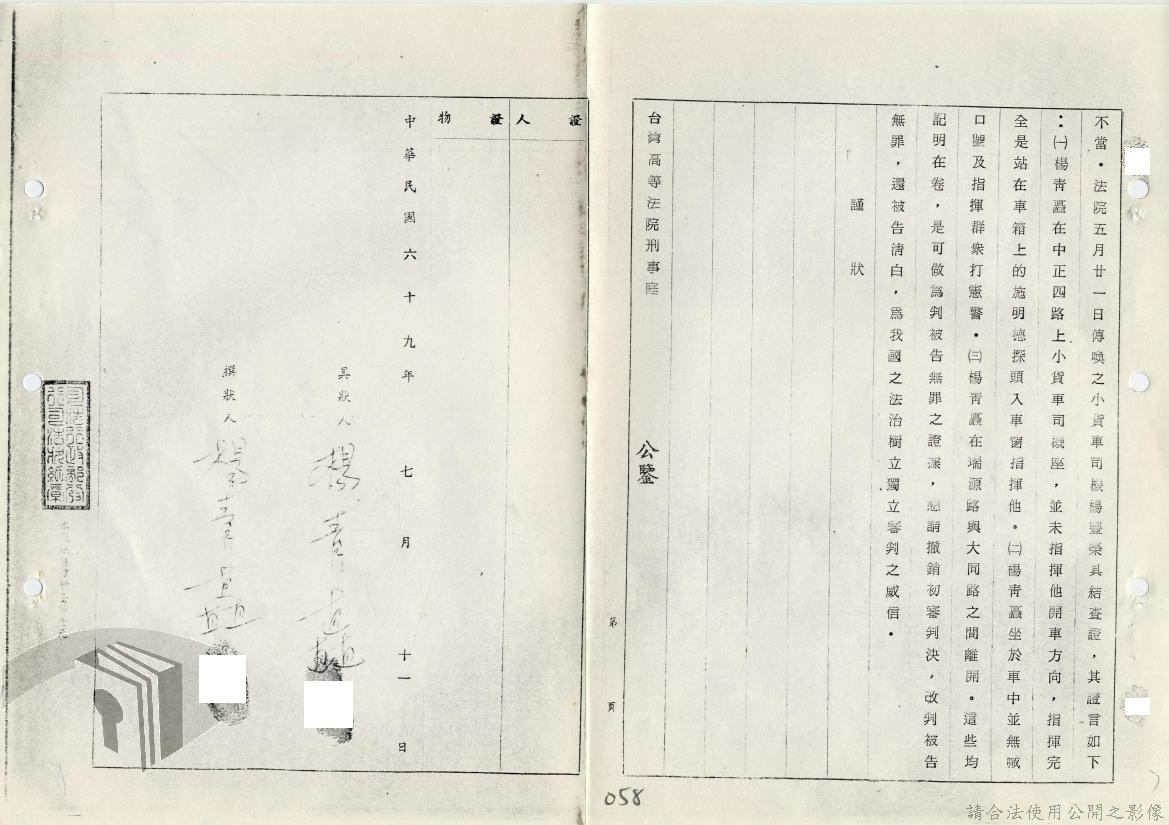 不當。法院五月廿一日傳喚之小貨車司機楊豐榮具結查證，其證言如下
：㈠楊青矗在中正四路上小貨車司機座，並未指揮他開車方向，指揮完
全是站在車箱上的施明德探頭入車窗指揮他。㈡楊青矗坐於車中並無喊
口號及指揮群衆打憲警。㈢楊青矗在瑞源路與大同路之間離開。這些均
記明在卷，是可做為判被告無罪之證據，懇請撤銷初審判決，改判被告
無罪，還被告清白，爲我國之法治樹立獨立審判之威信。
謹狀
台灣高等法院刑事庭
公鑒
第　頁
證人
證物
中華民國六十九年七月十一日
具狀人　楊青矗
撰狀人　楊青矗
058
請合法使用公開之影像